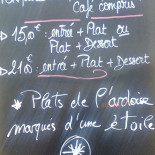 Café compris
15,00€: entrée + Plat ou
Plat + Dessert
21,00€: entrée + Plat + Dessert
* Plats de l'ardoise
marqués d'une étoile